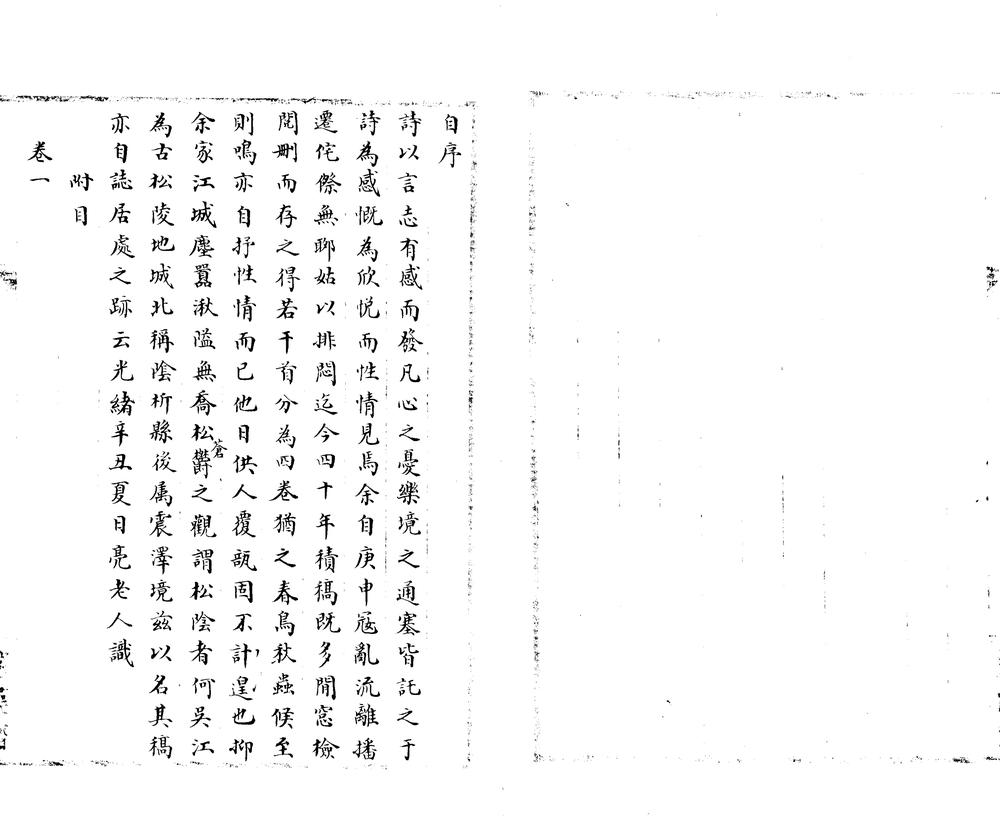 自序
詩以言志有感而發凡心之憂樂境之通塞皆託之于
詩為感慨為欣悅而性情見焉余自庚申寇亂流離播
遷侘傺無聊姑以排悶迄今四十年積稿既多閒窓檢
閱刪而存之得若干首分為四卷猶之春鳥秋蟲候至
則鳴亦自抒性情而已他日供人覆瓿固不計遑也抑
余家江城塵囂湫隘無喬松蒼鬱之觀謂松陰者何吳江
為古松陵地城北稱陰析縣後屬震澤境茲以名其稿
亦自誌居處之跡云光緒辛丑夏日亮老人識
附目
卷一